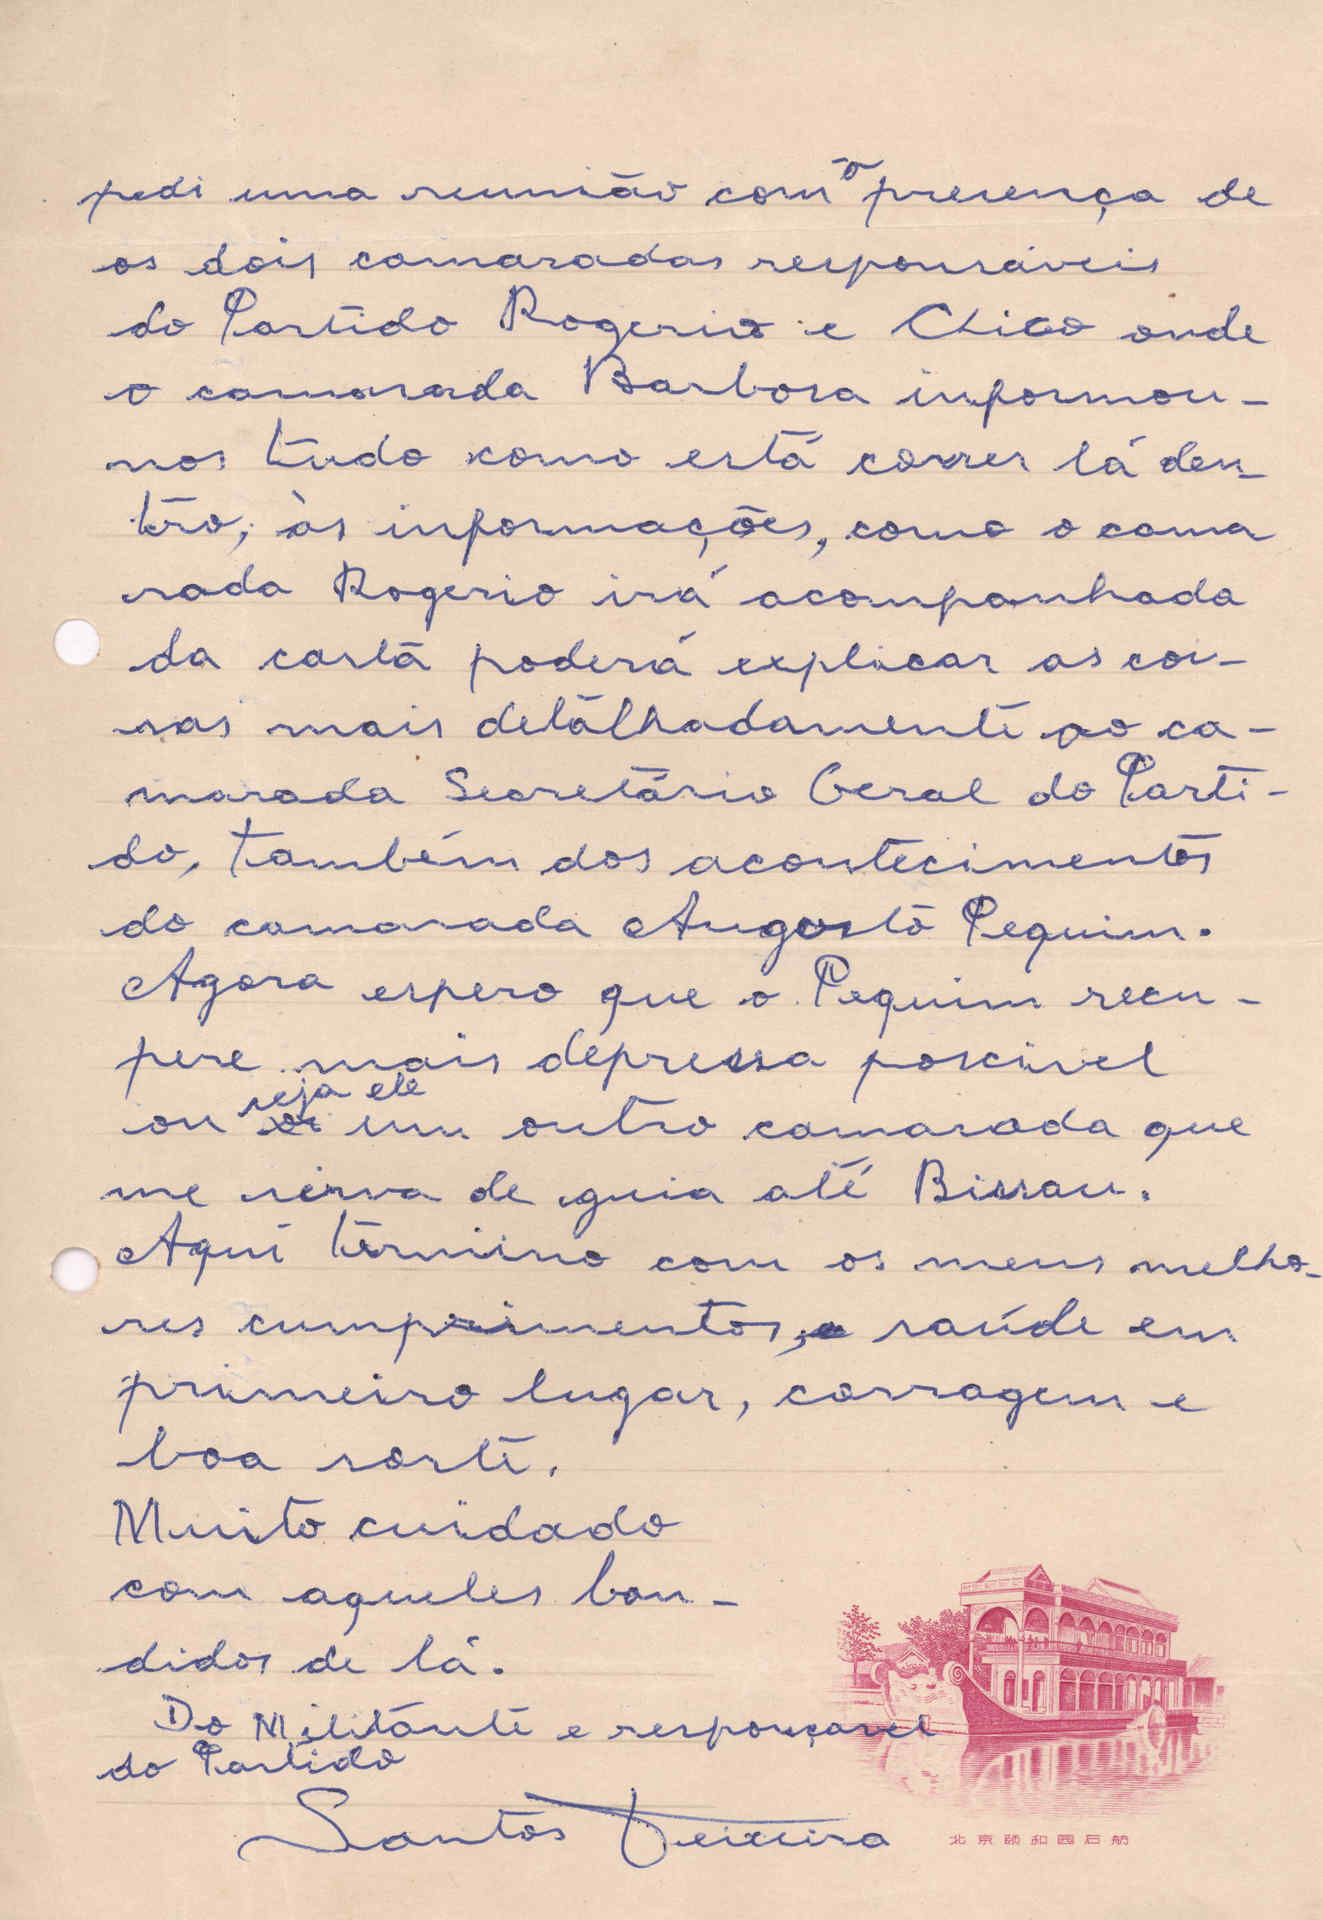 pedi uma reunião com o presença de
os dois camaradas responsáveis
do Partido Rogerio e Chico onde
o camarada Barbosa informou-
nos tudo como está correr lá den-
tro, às informações, como o cama
rada Rogerio irá acompanhada
da carta poderá explicar as coi-
sas mais detalhadamente ao ca-
marada Secretário Geral do Parti-
do, também dos acontecimentos
do camarada Augosto Pequim.
Agora espero que o Pequim recu-
pere mais depressa poscivel
ou seja ele um outro camarada que
me sirva de guia até Bissau.
Aqui termino com os meus melho-
res cumprimentos, saúde em
primeiro lugar, corragem e
boa sorte.
Muito cuidado
com aqueles ban-
didos de lá.
Do Militante e responçavel
do Partido
Santos Teixeira
北京颐和园石舫